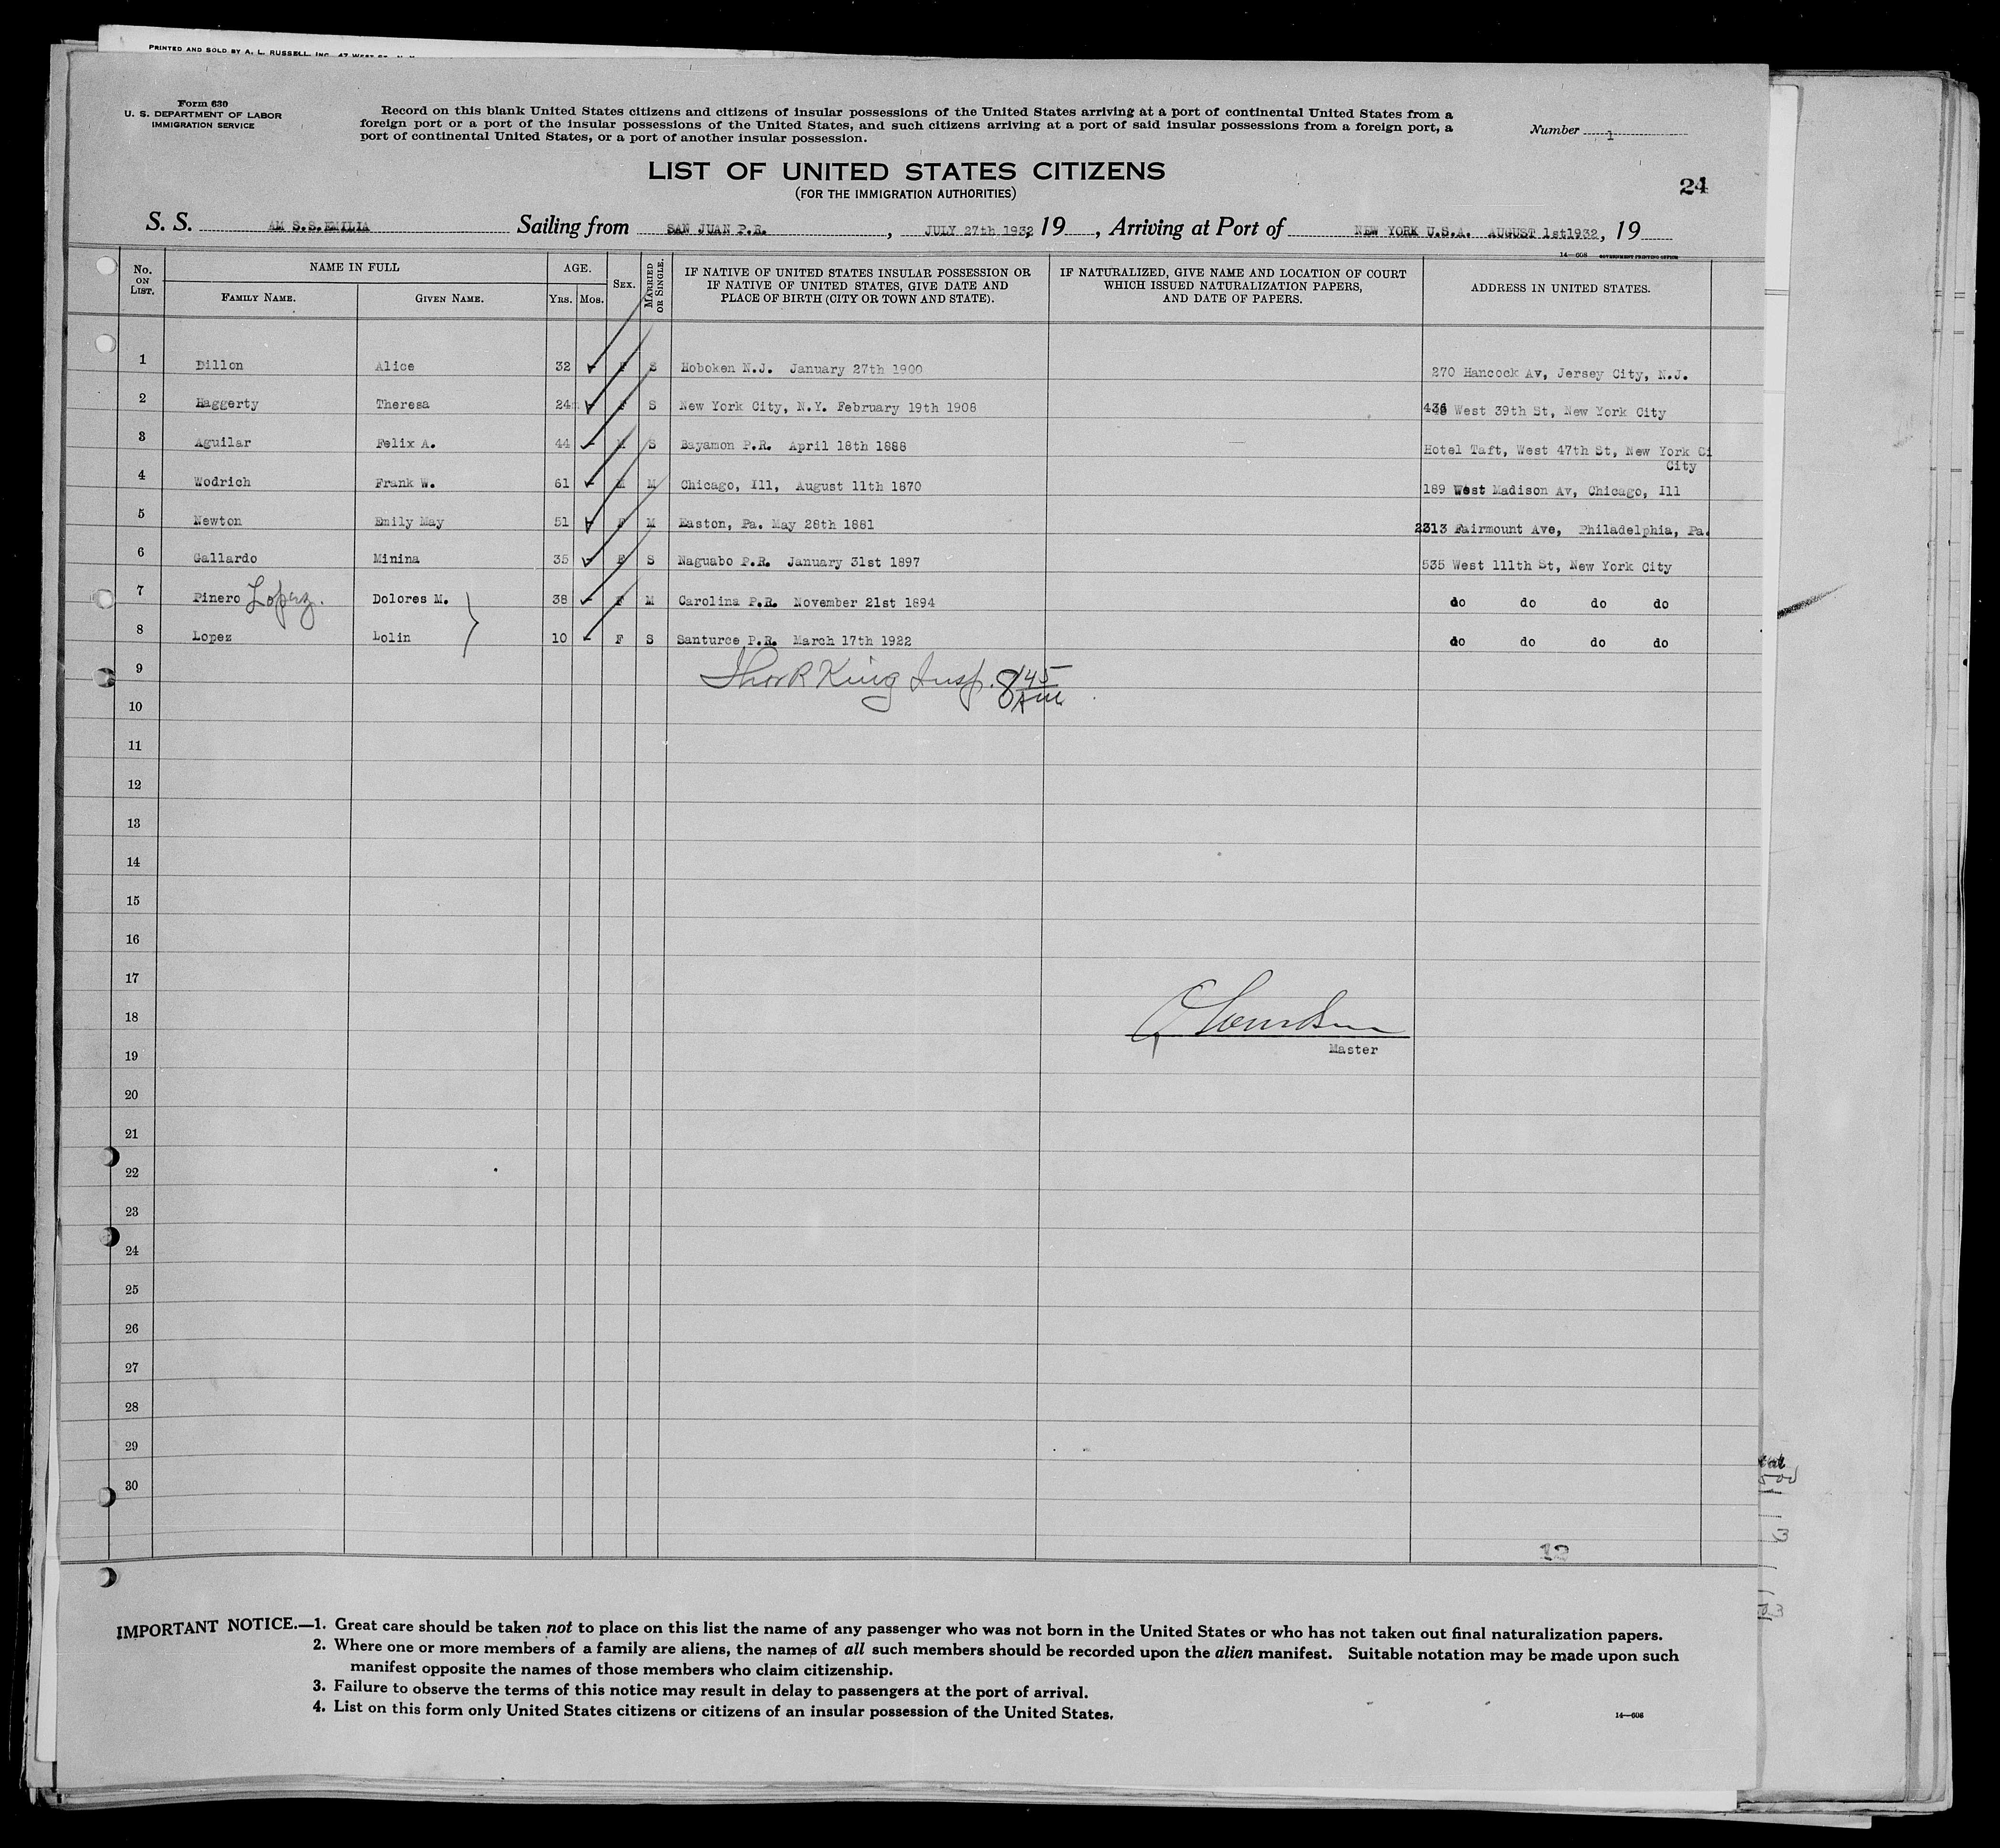 PRINTED AND SOLD BY A. L. RUSSELL, INC. 47 WEST ST. N. Y.
Form 630
U. S. DEPARTMENT OF LABOR
IMMIGRATION SERVICE
Record on this blank United States citizens and citizens of insular possessions of the United States arriving at a port of continental United States from a
foreign port or a port of the insular possessions of the United States, and such citizens arriving at a port of said insular possessions from a foreign port, a
port of continental United States, or a port of another insular possession.
Number 1
LIST OF UNITED STATES CITIZENS
(FOR THE IMMIGRATION AUTHORITIES)
24
S. S. AM S.S.EMILIA Sailing from SAN JUAN P.R. , JULY 27th 1932, 19 , Arriving at Port of NEW YORK U.S.A. AUGUST 1st1932, 19
14—608 GOVERNMENT PRINTING OFFICE
No. ON LIST. NAME IN FULL FAMILY NAME. GIVEN NAME. AGE. YRS. MOS. SEX. MARRIED OR SINGLE. IF NATIVE OF UNITED STATES INSULAR POSSESSION OR IF NATIVE OF UNITED STATES, GIVE DATE AND PLACE OF BIRTH (CITY OR TOWN AND STATE). IF NATURALIZED, GIVE NAME AND LOCATION OF COURT WHICH ISSUED NATURALIZATION PAPERS, AND DATE OF PAPERS. ADDRESS IN UNITED STATES.
1 Dillon Alice 32 - F S Hoboken N.J. January 27th 1900 270 Hancock Av, Jersey City, N.J.
2 Haggerty Theresa 24 - F S New York City, N.Y. February 19th 1908 436 West 39th St, New York City
3 Aguilar Felix A. 44 - M S Bayamon P.R. April 18th 1888 Hotel Taft, West 47th St, New York Ci
City
4 Wodrich Frank W. 61 - M M Chicago, Ill, August 11th 1870 189 West Madison Av, Chicago, Ill
5 Newton Emily May 51 - F M Easton, Pa. May 28th 1881 2313 Fairmount Ave, Philadelphia, Pa.
6 Gallardo Minina 35 - F S Naguabo P.R. January 31st 1897 535 West 111th St, New York City
7 Pinero Lopez. Dolores M. 38 - F M Carolina P.R. November 21st 1894 do do do do
8 Lopez Lolin 10 - F S Santurce P.R. March 17th 1922 do do do do
9 Thos R King Insp. 8 45 AM
10
11
12
13
14
15
16
17
18
19 Master
20
21
22
23
24
25
26
27
28
29
30
12
IMPORTANT NOTICE.—1. Great care should be taken not to place on this list the name of any passenger who was not born in the United States or who has not taken out final naturalization papers.
2. Where one or more members of a family are aliens, the names of all such members should be recorded upon the alien manifest. Suitable notation may be made upon such
manifest opposite the names of those members who claim citizenship.
3. Failure to observe the terms of this notice may result in delay to passengers at the port of arrival.
4. List on this form only United States citizens or citizens of an insular possession of the United States.
14—608